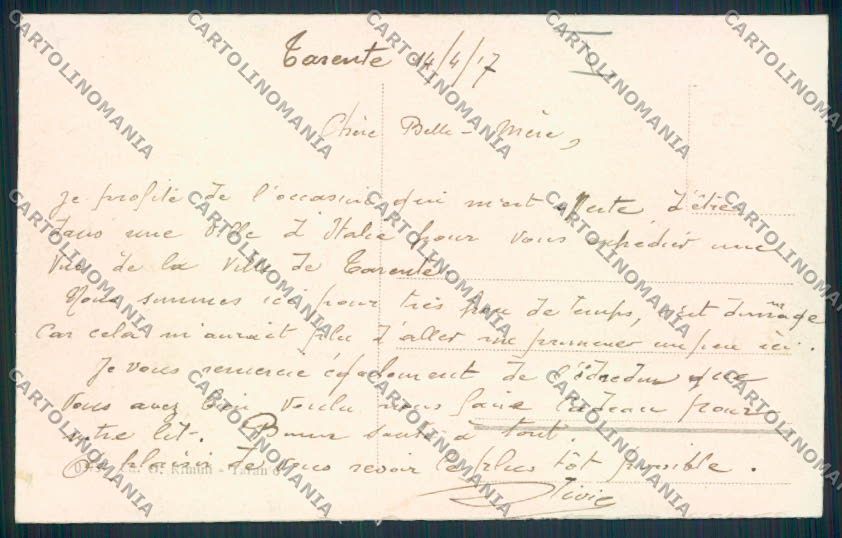 Tarente 14/4/17
Chère Belle-Mère,
Je profite de l'occasion qui m'est offerte d'être
dans une ville d'Italie pour vous expédier une
vue de la ville de Tarente
Nous sommes ici pour très peu de temps, c'est dommage
car cela m'aurait plu d'aller me promener un peu ici.
Je vous remercie également de l'édredon que
vous avez bien voulu nous faire cadeau pour
notre lit. Bonne santé à tout.
Au plaisir de vous revoir le plus tôt possible.
CARTOLINOMANIA